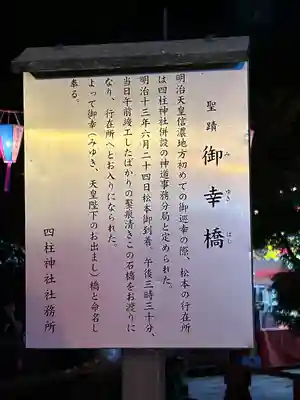 聖蹟 御幸橋
み ゆき はし
明治天皇信濃地方初めての御巡幸の際、松本の行在所
は四柱神社併設の神道事務分局と定められた。
明治十三年六月二十四日松本御到着、午後三時三十分、
当日午前竣工したばかりの鑿痕清きこの石橋をお渡りに
なり、行在所へとお入りになられた。
よって御幸(みゆき、天皇陛下のお出まし)橋と命名し
奉る。
四柱神社社務所